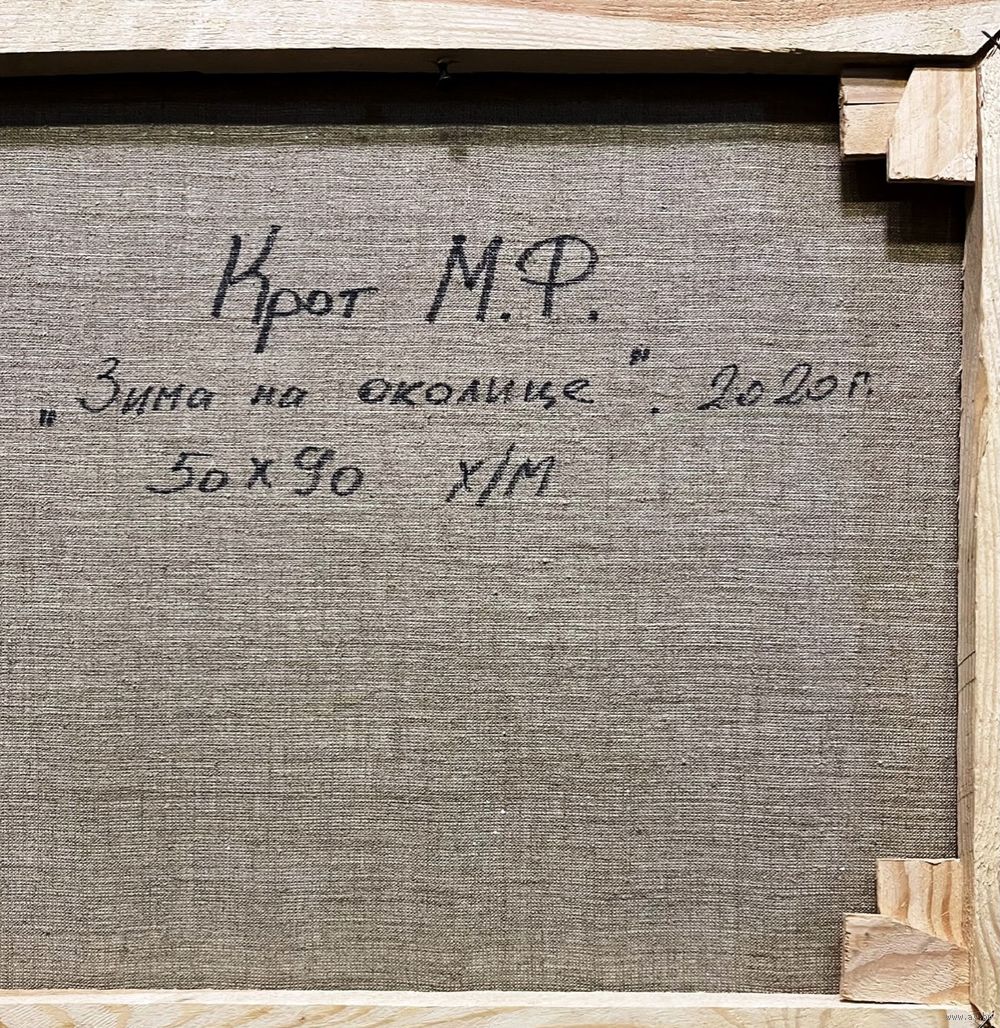 Крот М.Ф.
„Зима на околице". 2020 г.
50 х 90 х/м